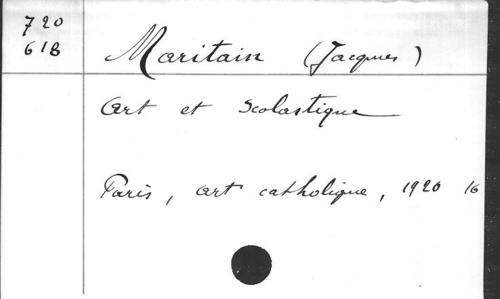 720
618
Maritain (Jacques)
Art et Scolastique
Paris, art catholique, 1920 16